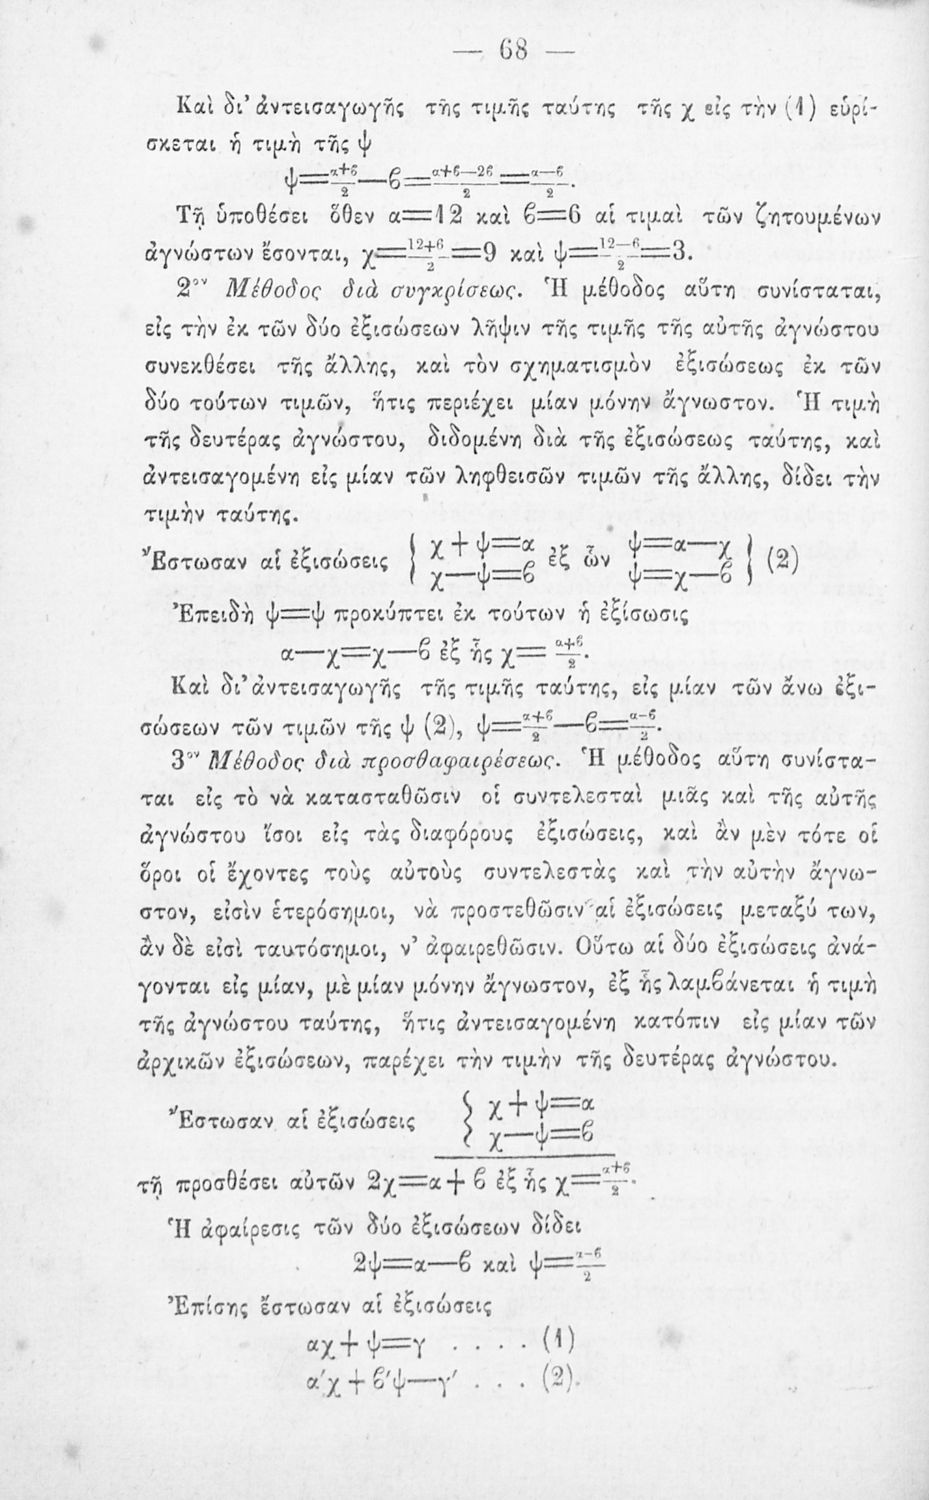 — 68 —
Καὶ δι’ ἀντεισαγωγῆς τῆς τιμῆς ταύτης τῆς χ εἰς τὴν (1) εὑρί-
σκεται ἡ τιμὴ τῆς ψ
ψ=α+β/2—β=α+β—2β/2=α—β/2.
Τῇ ὑποθέσει ὅθεν α=12 καὶ β=6 αἱ τιμαὶ τῶν ζητουμένων
ἀγνώστων ἔσονται, χ=12+6/2=9 καὶ ψ=12—6/2=3.
2ον Μέθοδος διὰ συγκρίσεως. Ἡ μέθοδος αὕτη συνίσταται,
εἰς τὴν ἐκ τῶν δύο ἐξισώσεων λῆψιν τῆς τιμῆς τῆς αὐτῆς ἀγνώστου
συνεκθέσει τῆς ἄλλης, καὶ τὸν σχηματισμὸν ἐξισώσεως ἐκ τῶν
δύο τούτων τιμῶν, ἥτις περιέχει μίαν μόνην ἄγνωστον. Ἡ τιμὴ
τῆς δευτέρας ἀγνώστου, διδομένη διὰ τῆς ἐξισώσεως ταύτης, καὶ
ἀντεισαγομένη εἰς μίαν τῶν ληφθεισῶν τιμῶν τῆς ἄλλης, δίδει τὴν
τιμὴν ταύτης.
Ἔστωσαν αἱ ἐξισώσεις { χ+ψ=α χ—ψ=β ἐξ ὧν ψ=α—χ ψ=χ—β } (2)
Ἐπειδὴ ψ=ψ προκύπτει ἐκ τούτων ἡ ἐξίσωσις
α—χ=χ—β ἐξ ἧς χ=α+β/2.
Καὶ δι’ ἀντεισαγωγῆς τῆς τιμῆς ταύτης, εἰς μίαν τῶν ἄνω ἐξι-
σώσεων τῶν τιμῶν τῆς ψ (2), ψ=α+β/2—β=α-β/2.
3ον Μέθοδος διὰ προσθαφαιρέσεως. Ἡ μέθοδος αὕτη συνίστα-
ται εἰς τὸ νὰ κατασταθῶσιν οἱ συντελεσταὶ μιᾶς καὶ τῆς αὐτῆς
ἀγνώστου ἴσοι εἰς τὰς διαφόρους ἐξισώσεις, καὶ ἂν μὲν τότε οἱ
ὅροι οἱ ἔχοντες τοὺς αὐτοὺς συντελεστὰς καὶ τὴν αὐτὴν ἄγνω-
στον, εἰσὶν ἑτερόσημοι, νὰ προστεθῶσιν αἱ ἐξισώσεις μεταξύ των,
ἂν δὲ εἰσὶ ταυτόσημοι, ν’ ἀφαιρεθῶσιν. Οὕτω αἱ δύο ἐξισώσεις ἀνά-
γονται εἰς μίαν, μὲ μίαν μόνην ἄγνωστον, ἐξ ἧς λαμβάνεται ἡ τιμὴ
τῆς ἀγνώστου ταύτης, ἥτις ἀντεισαγομένη κατόπιν εἰς μίαν τῶν
ἀρχικῶν ἐξισώσεων, παρέχει τὴν τιμὴν τῆς δευτέρας ἀγνώστου.
Ἔστωσαν αἱ ἐξισώσεις { χ+ψ=α χ—ψ=β
τῇ προσθέσει αὐτῶν 2χ=α+β ἐξ ἧς χ=α+β/2.
Ἡ ἀφαίρεσις τῶν δύο ἐξισώσεων δίδει
2ψ=α—β καὶ ψ=α-β/2
Ἐπίσης ἔστωσαν αἱ ἐξισώσεις
αχ+ψ=γ . . . . (1)
α′χ+β′ψ—γ′ . . . (2).